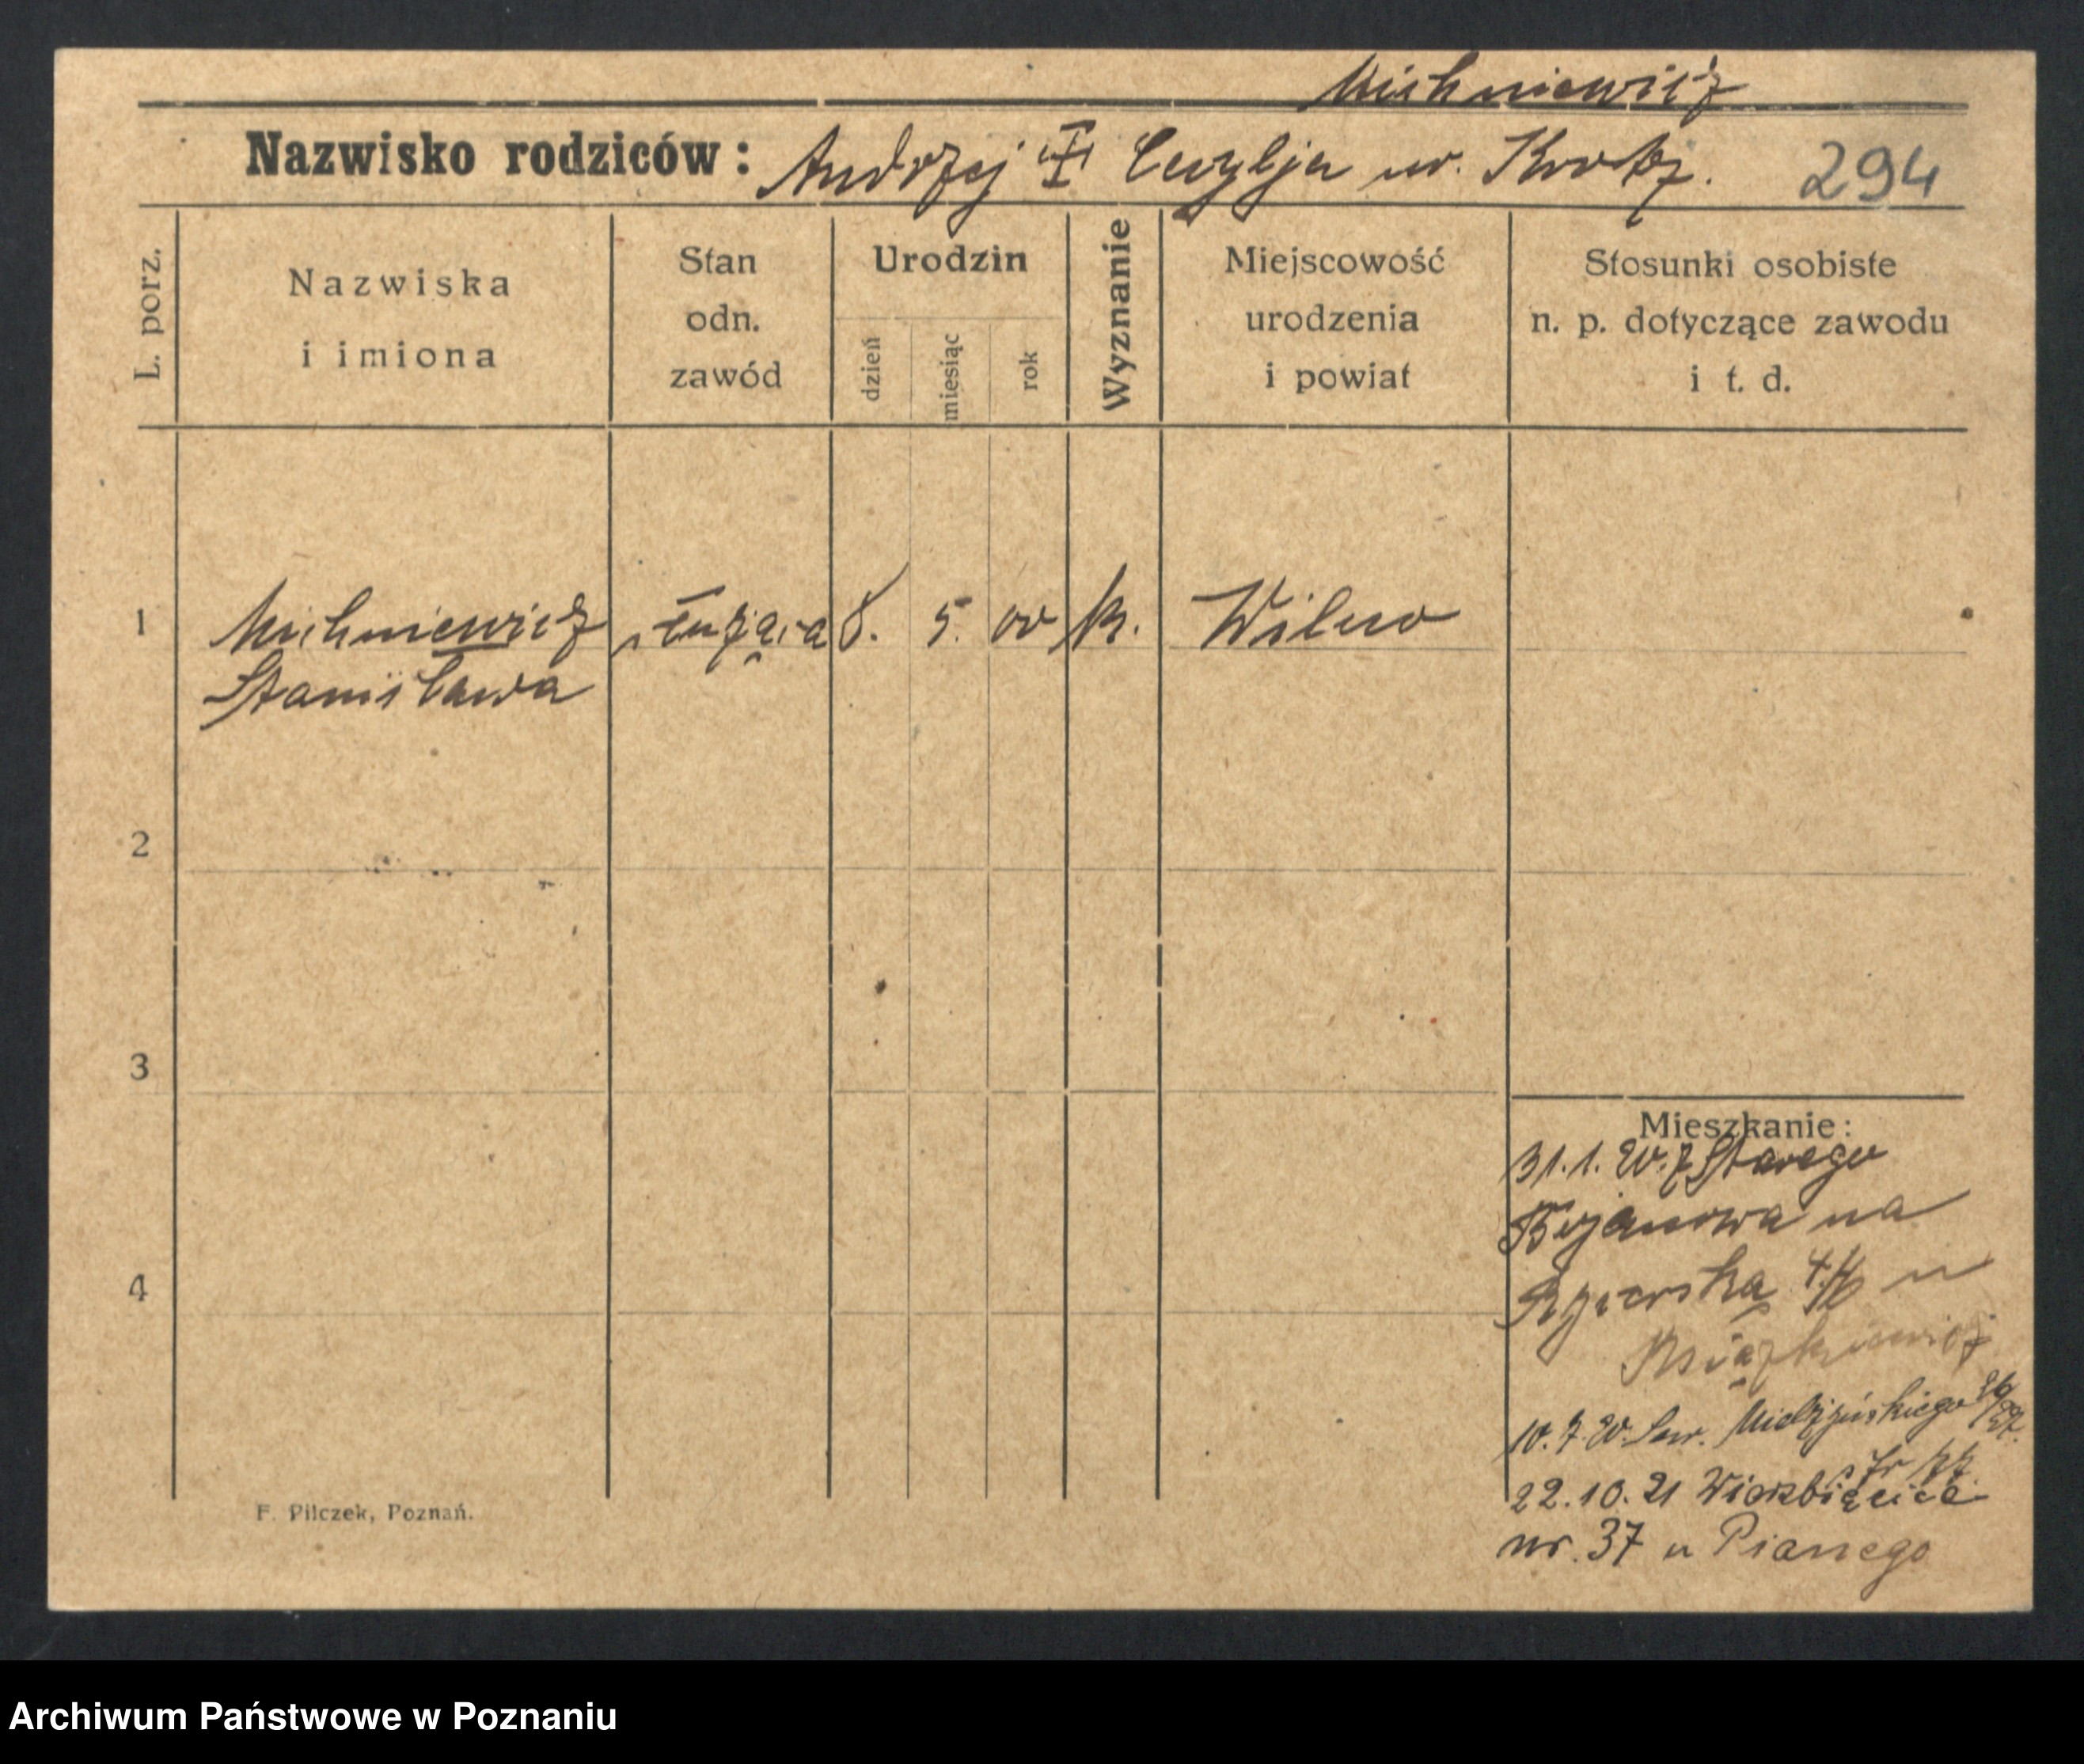 Michniewicz
Nazwisko rodziców: Andrzej i Cecylja ur. 294
L. porz.
Nazwiska
i imiona
Stan
odn.
zawód
Urodzin
dzień
miesiąc
rok
Wyznanie
Miejscowość
urodzenia
i powiat
Stosunki osobiste
n. p. dotyczące zawodu
i t. d.
1 Michniewicz służąca 8. 5. 00 k. Wilno
Stanisława
2
3
4
Mieszkanie:
31.1.20. z Starego
Bojanowa na
u
Książkiewicz
10.7.20. Mielżyńskiego 26/27
22.10.21 Wierzbięcice
nr. 37 u Pianego
F. Pilczek, Poznań.
Archiwum Państwowe w Poznaniu